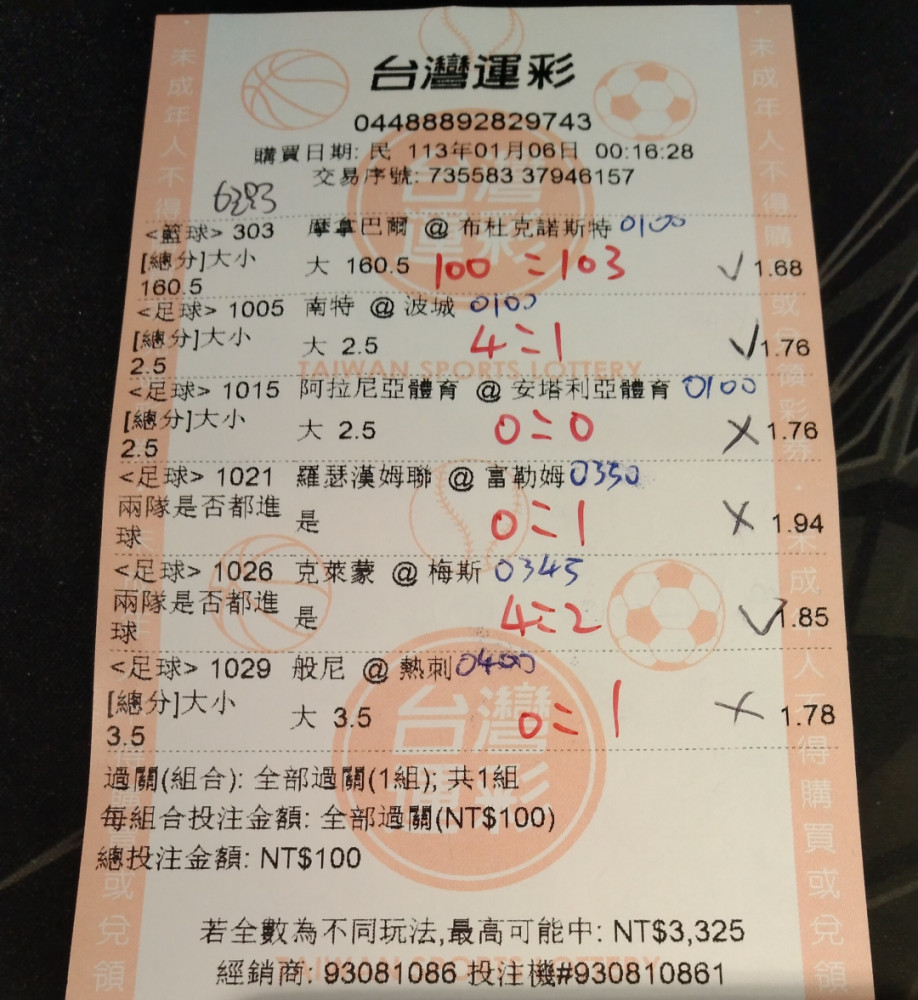 台灣運彩
04488892829743
購買日期: 民 113年01月06日 00:16:28
交易序號: 735583 37946157
<籃球> 303 摩拿巴爾 @ 布杜克諾斯特 0100
[總分]大小 大 160.5 100 : 103 ✓ 1.68
160.5
<足球> 1005 南特 @ 波城 0100
[總分]大小 大 2.5 4:1 ✓ 1.76
2.5
TAIWAN SPORTS LOTTERY
<足球> 1015 阿拉尼亞體育 @ 安塔利亞體育 0100
[總分]大小 大 2.5 0:0 ✗ 1.76
2.5
<足球> 1021 羅瑟漢姆聯 @ 富勒姆 0350
兩隊是否都進 是 0:1 ✗ 1.94
球
<足球> 1026 克萊蒙 @ 梅斯 0345
兩隊是否都進 是 4:2 ✓ 1.85
球
<足球> 1029 般尼 @ 熱刺 0400
[總分]大小 大 3.5 0:1 ✗ 1.78
3.5
過關(組合): 全部過關(1組); 共1組
每組合投注金額: 全部過關(NT$100)
總投注金額: NT$100
若全數為不同玩法,最高可能中: NT$3,325
經銷商: 93081086 投注機#930810861